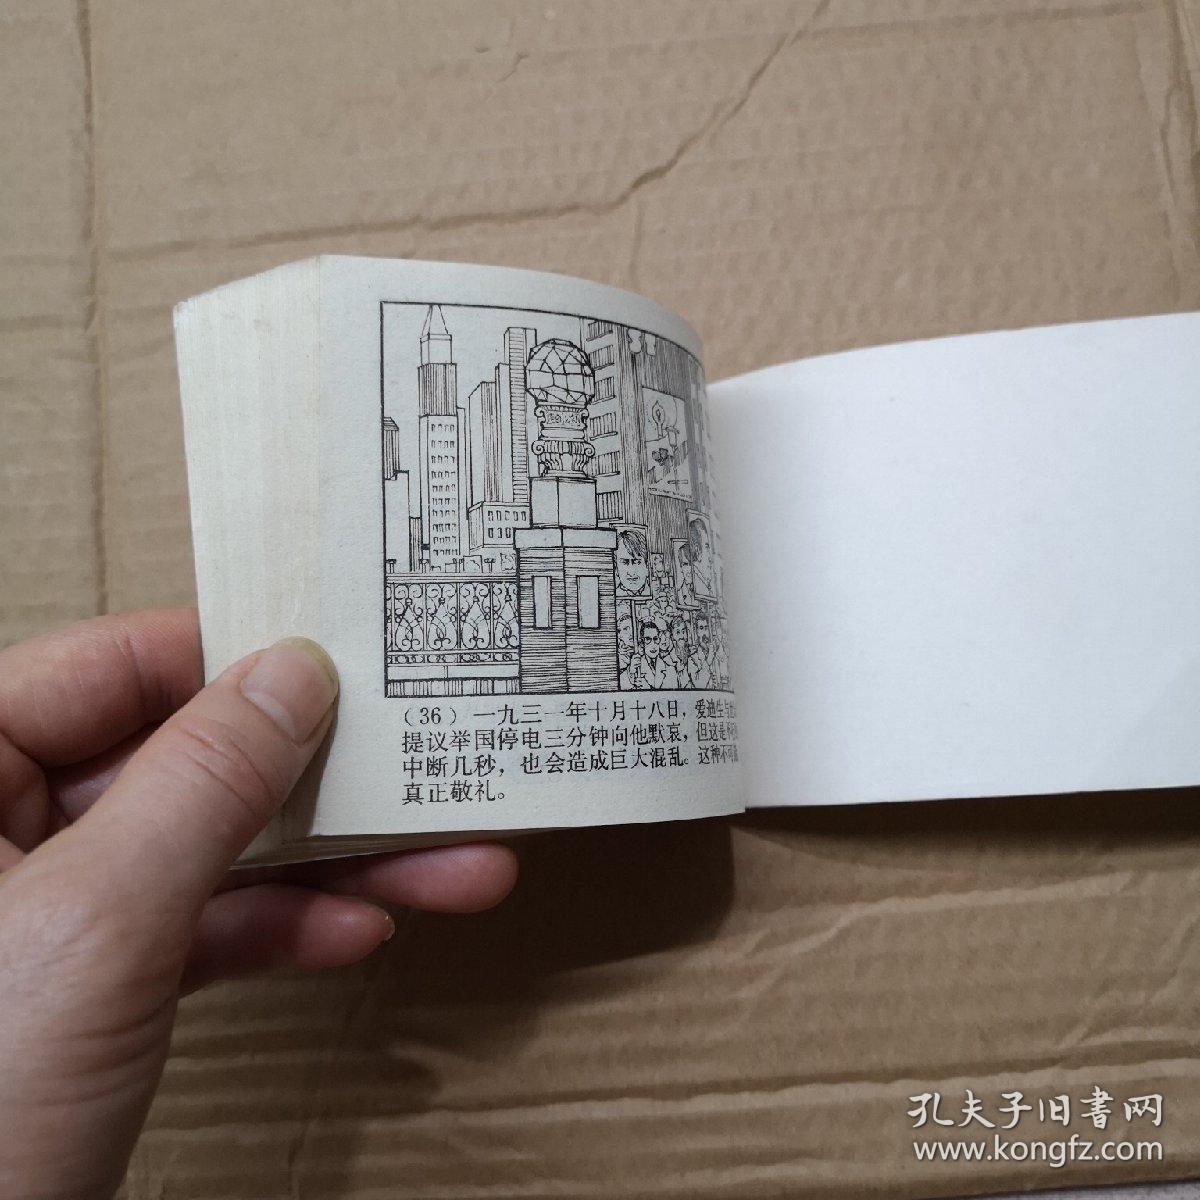 (36) 一九三一年十月十八日，爱迪生与
提议举国停电三分钟向他默哀，但这是不
中断几秒，也会造成巨大混乱。这种不可
真正敬礼。
孔夫子旧書网
www.kongfz.com